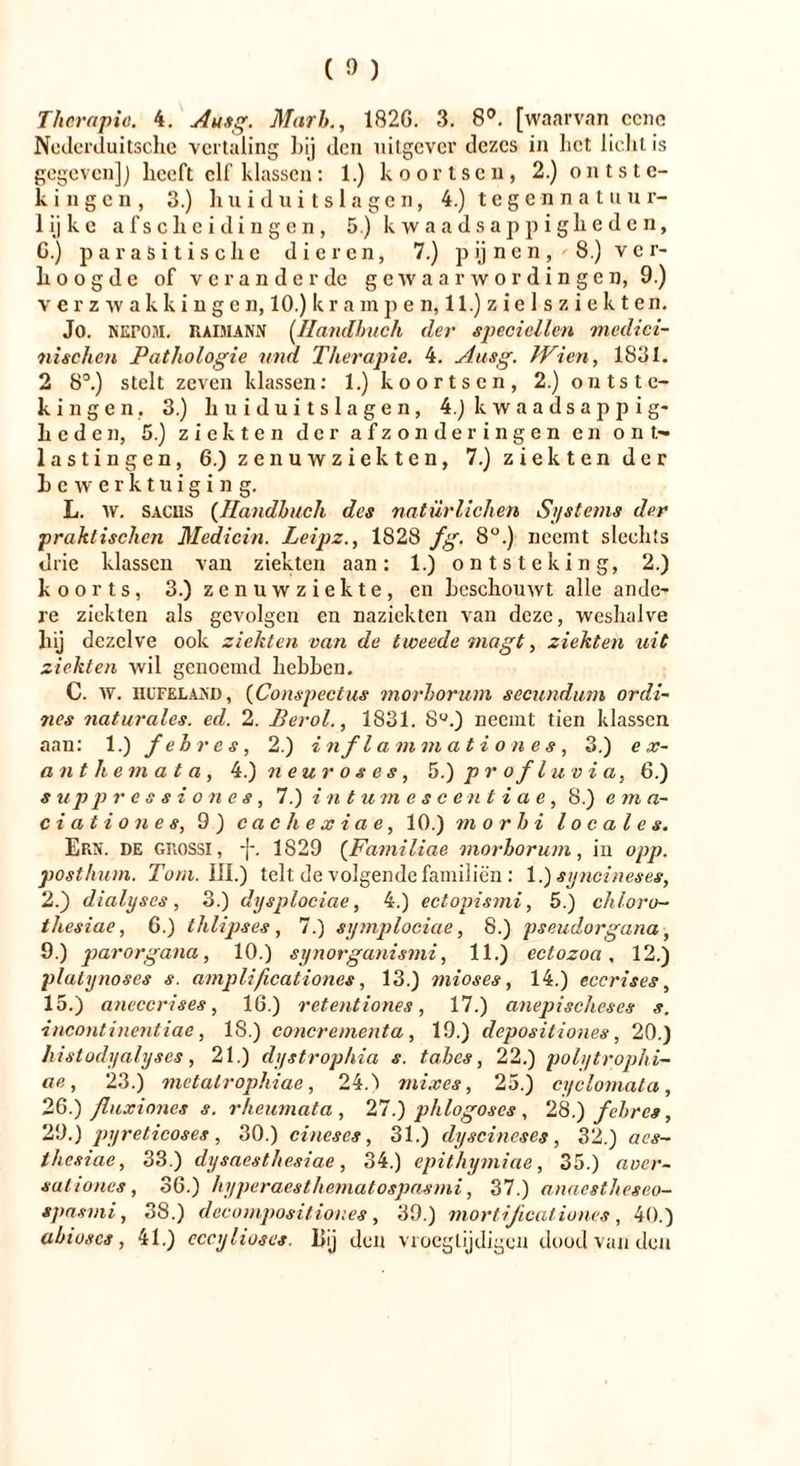 ( 9 )
Therapie. 4. Ausg. Marb., 1826. 3. 8°. [waarvan eene
Nederduitsche vertaling bij den uitgever dezes in het licht is
gegeven]) heeft elf klassen: 1.) koortsen, 2.) ontste-
kingen, 3.) huiduitslagen, 4.) tegennatuur-
lijke afscheidingen, 5.) kwaadsappigheden,
6.) parasitische dieren, 7.) pijnen, 8.) ver-
hoogde of veranderde gewaarwordingen, 9.)
verzwakkingen, 10.) krampen, 11.) zielsziekten.
Jo. NEPOM. RAIMANN (Handbuch der speciellen medici-
nischen Pathologie und Therapie. 4. Ausg. Wien, 1831.
2 8°.) stelt zeven klassen: 1.) koortsen, 2.) ontste-
kingen. 3.) huiduitslagen, 4.) kwaadsappig-
heden, 5.) ziekten der afzonderingen en ont-
lastingen, 6.) zenuwziekten, 7.) ziekten der
bewerktuiging.
L. W. SACHS (Handbuch des natürlichen Systems der
praktischen Medicin. Leipz., 1828 fg. 8°.) neemt slechts
drie klassen van ziekten aan: 1.) ontsteking, 2.)
koorts, 3.) zenuwziekte, en beschouwt alle ande-
re ziekten als gevolgen en naziekten van deze, weshalve
hij dezelve ook ziekten van de tweede magt, ziekten uit
ziekten wil genoemd hebben.
C. W. HUFELAND, (Conspectus morborum secundum ordi-
nes naturales. ed. 2. Berol., 1831. 8°.) neemt tien klassen
aan: 1.) febres, 2.) inflammationes, 3.) ex-
anthemata, 4.) neuroses, 5.) profluvia, 6.)
suppressiones, 7.) intumescentiae, 8.) ema-
ciationes, 9 ) cachexiae, 10.) morbi locales.
ERN. DE GROSSI, †. 1829 (Familiae morborum, in opp.
posthum. Tom. III.) telt de volgende familiën: 1.) syncineses,
2.) dialyses, 3.) dysplociae, 4.) ectopismi, 5.) chloro-
thesiae, 6.) thlipses, 7.) symplociae, 8.) pseudorgana,
9.) parorgana, 10.) synorganismi, 11.) ectozoa, 12.)
platynoses s. amplificationes, 13.) mioses, 14.) eccrises,
15.) aneccrises, 16.) retentiones, 17.) anepischeses s.
incontinentiae, 18.) concrementa, 19.) depositiones, 20.)
histodyalyses, 21.) dystrophia s. tabes, 22.) polytrophi-
ae, 23.) metatrophiae, 24.) mixes, 25.) cyclomata,
26.) fluxiones s. rheumata, 27.) phlogoses, 28.) febres,
29.) pyreticoses, 30.) cineses, 31.) dyscineses, 32.) aes-
thesiae, 33.) dysaesthesiae, 34.) epithymiae, 35.) aver-
sationes, 36.) hyperaesthematospasmi, 37.) anaestheseo-
spasmi, 38.) decompositiones, 39.) mortificationes, 40.)
abioses, 41.) eccylioses. Bij den vroegtijdigen dood van den